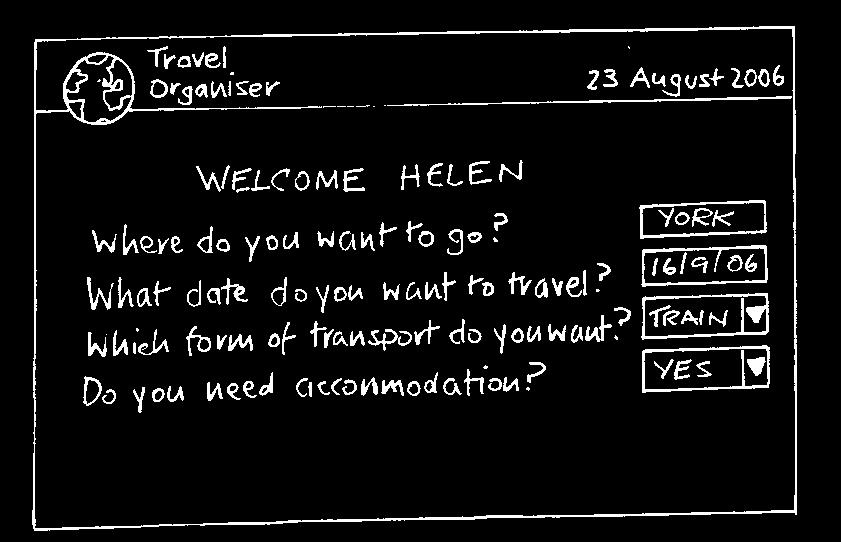 Travel
Organiser
23 August 2006
WELCOME HELEN
Where do you want to go?
YORK
What date do you want to travel?
16/9/06
Which form of transport do you want?
TRAIN
Do you need acconmodation?
YES